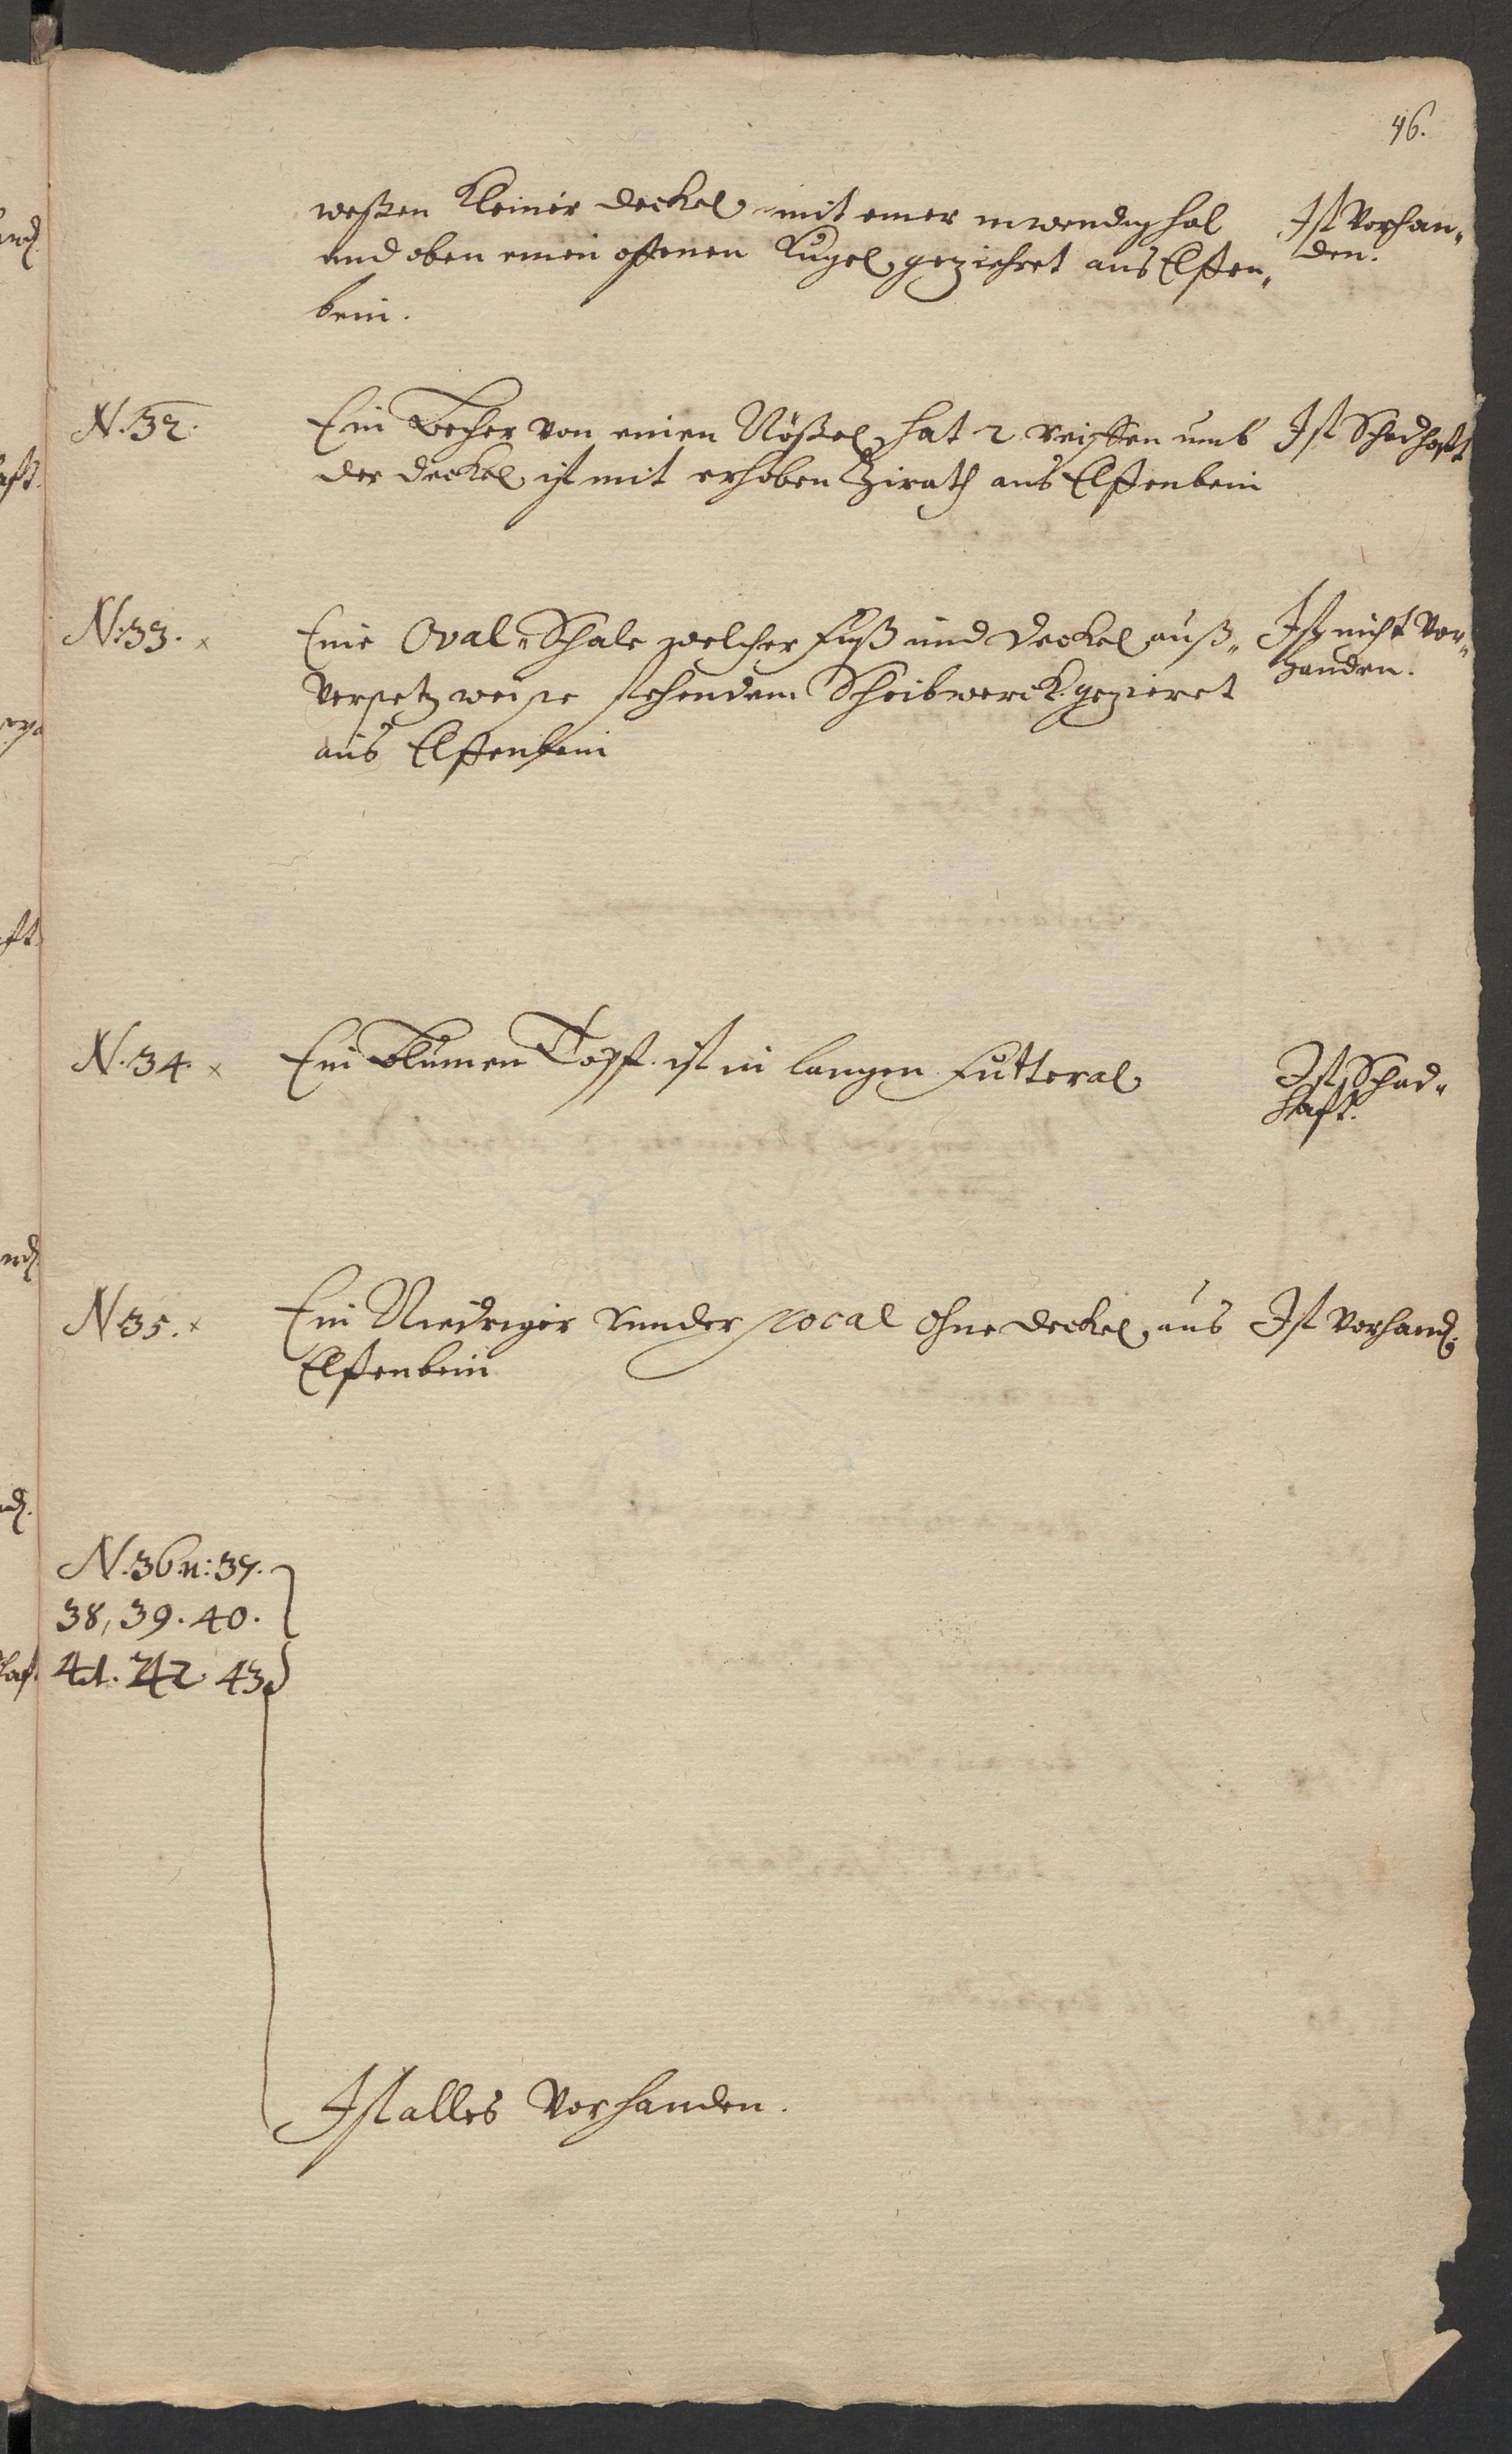 46.
weßen kleiner deckel mit einer inwendig hol
und oben einen offenen Kugel geziehret aus Elffen„
bein.
Ist Vorhan„
den.
N. 32.
Ein Becher von einen Nößel hat 2 reiffen umb
der deckel ist mit erhoben Zirath aus Elffenbein
Ist Schadhafft
N. 33. x
Eine Oval„Schale welcher Fuß und deckel auß„
Versetz weise stehendem Scheibwerck gezieret
aus Elffenbein
Ist nicht Vor„
handen.
N. 34. x
Ein Blumen Topff ist in langen Futteral
Ist Schad„
hafft.
N 35. x
Ein Niedriger runder pocal ohne deckel aus
Elffenbein
Ist Vorhand.
N. 36 n: 37.
38, 39. 40.
41. 42 43
Ist alles Vorhanden.